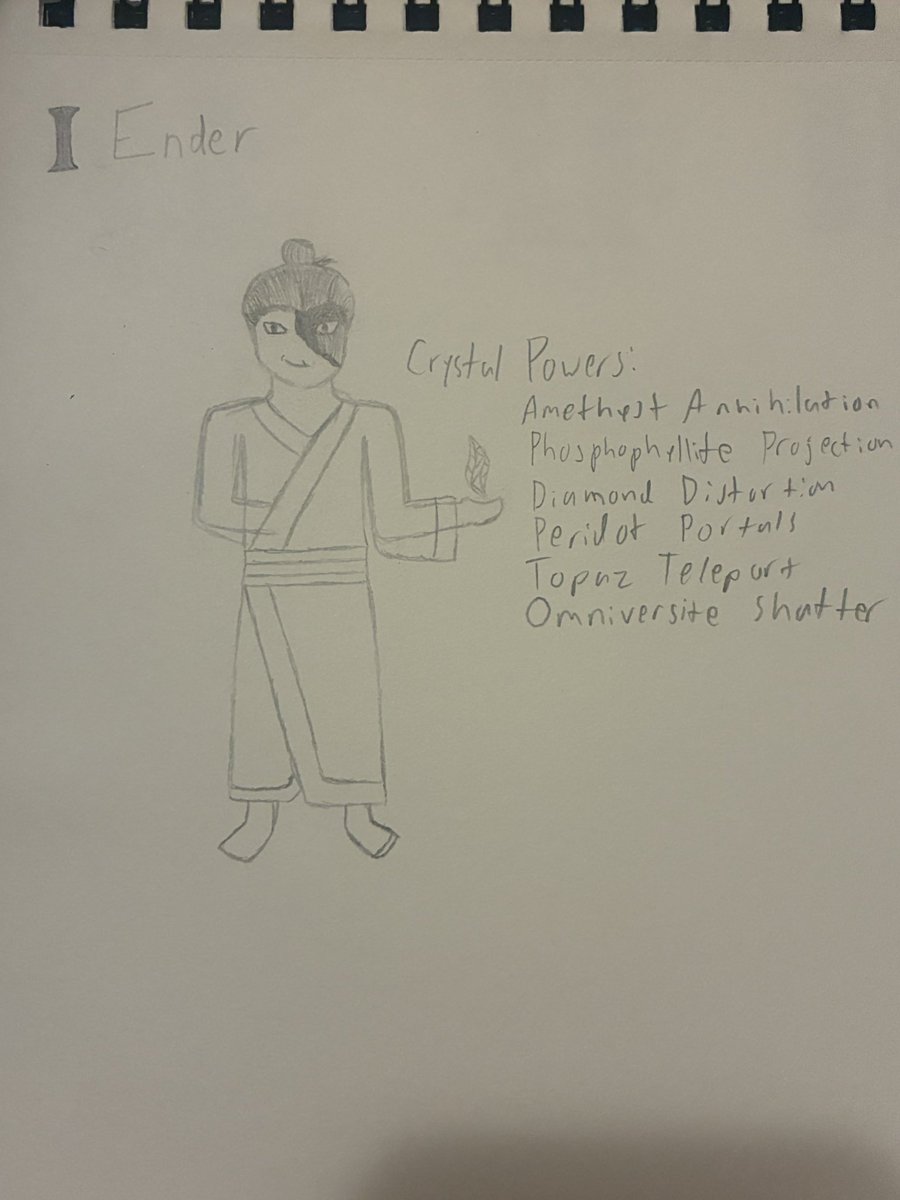 I Ender
Crystal Powers:
Amethyst Annihilation
Phosphophyllite Projection
Diamond Distortion
Peridot Portals
Topaz Teleport
Omniversite Shatter